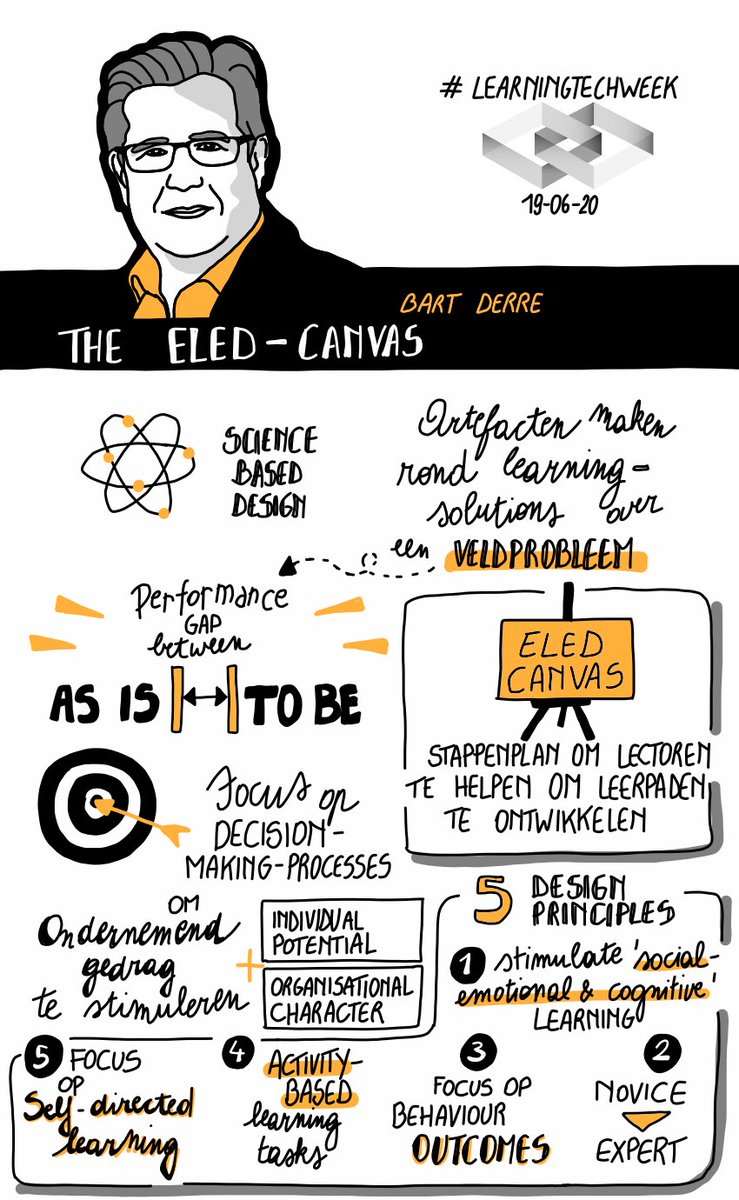 # LEARNINGTECHWEEK
19-06-20
BART DERRE
THE ELED-CANVAS
SCIENCE
BASED
DESIGN
Artefacten maken
rond learning-
solutions over
een VELDPROBLEEM
Performance
GAP
between
AS IS TO BE
ELED
CANVAS
STAPPENPLAN OM LECTOREN
TE HELPEN OM LEERPADEN
TE ONTWIKKELEN
Focus op
DECISION-
MAKING-PROCESSES
OM
Ondernemend
gedrag
te stimuleren
+
INDIVIDUAL
POTENTIAL
ORGANISATIONAL
CHARACTER
5 DESIGN
PRINCIPLES
1 stimulate 'social-
emotional & cognitive'
LEARNING
2
NOVICE
EXPERT
3
FOCUS OP
BEHAVIOUR
OUTCOMES
4 ACTIVITY-
BASED
learning
tasks
5 FOCUS
OP
Self-directed
learning